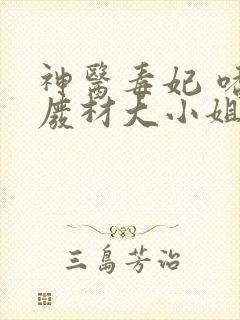 神醫毒妃
廢材大小姐
三島芳治